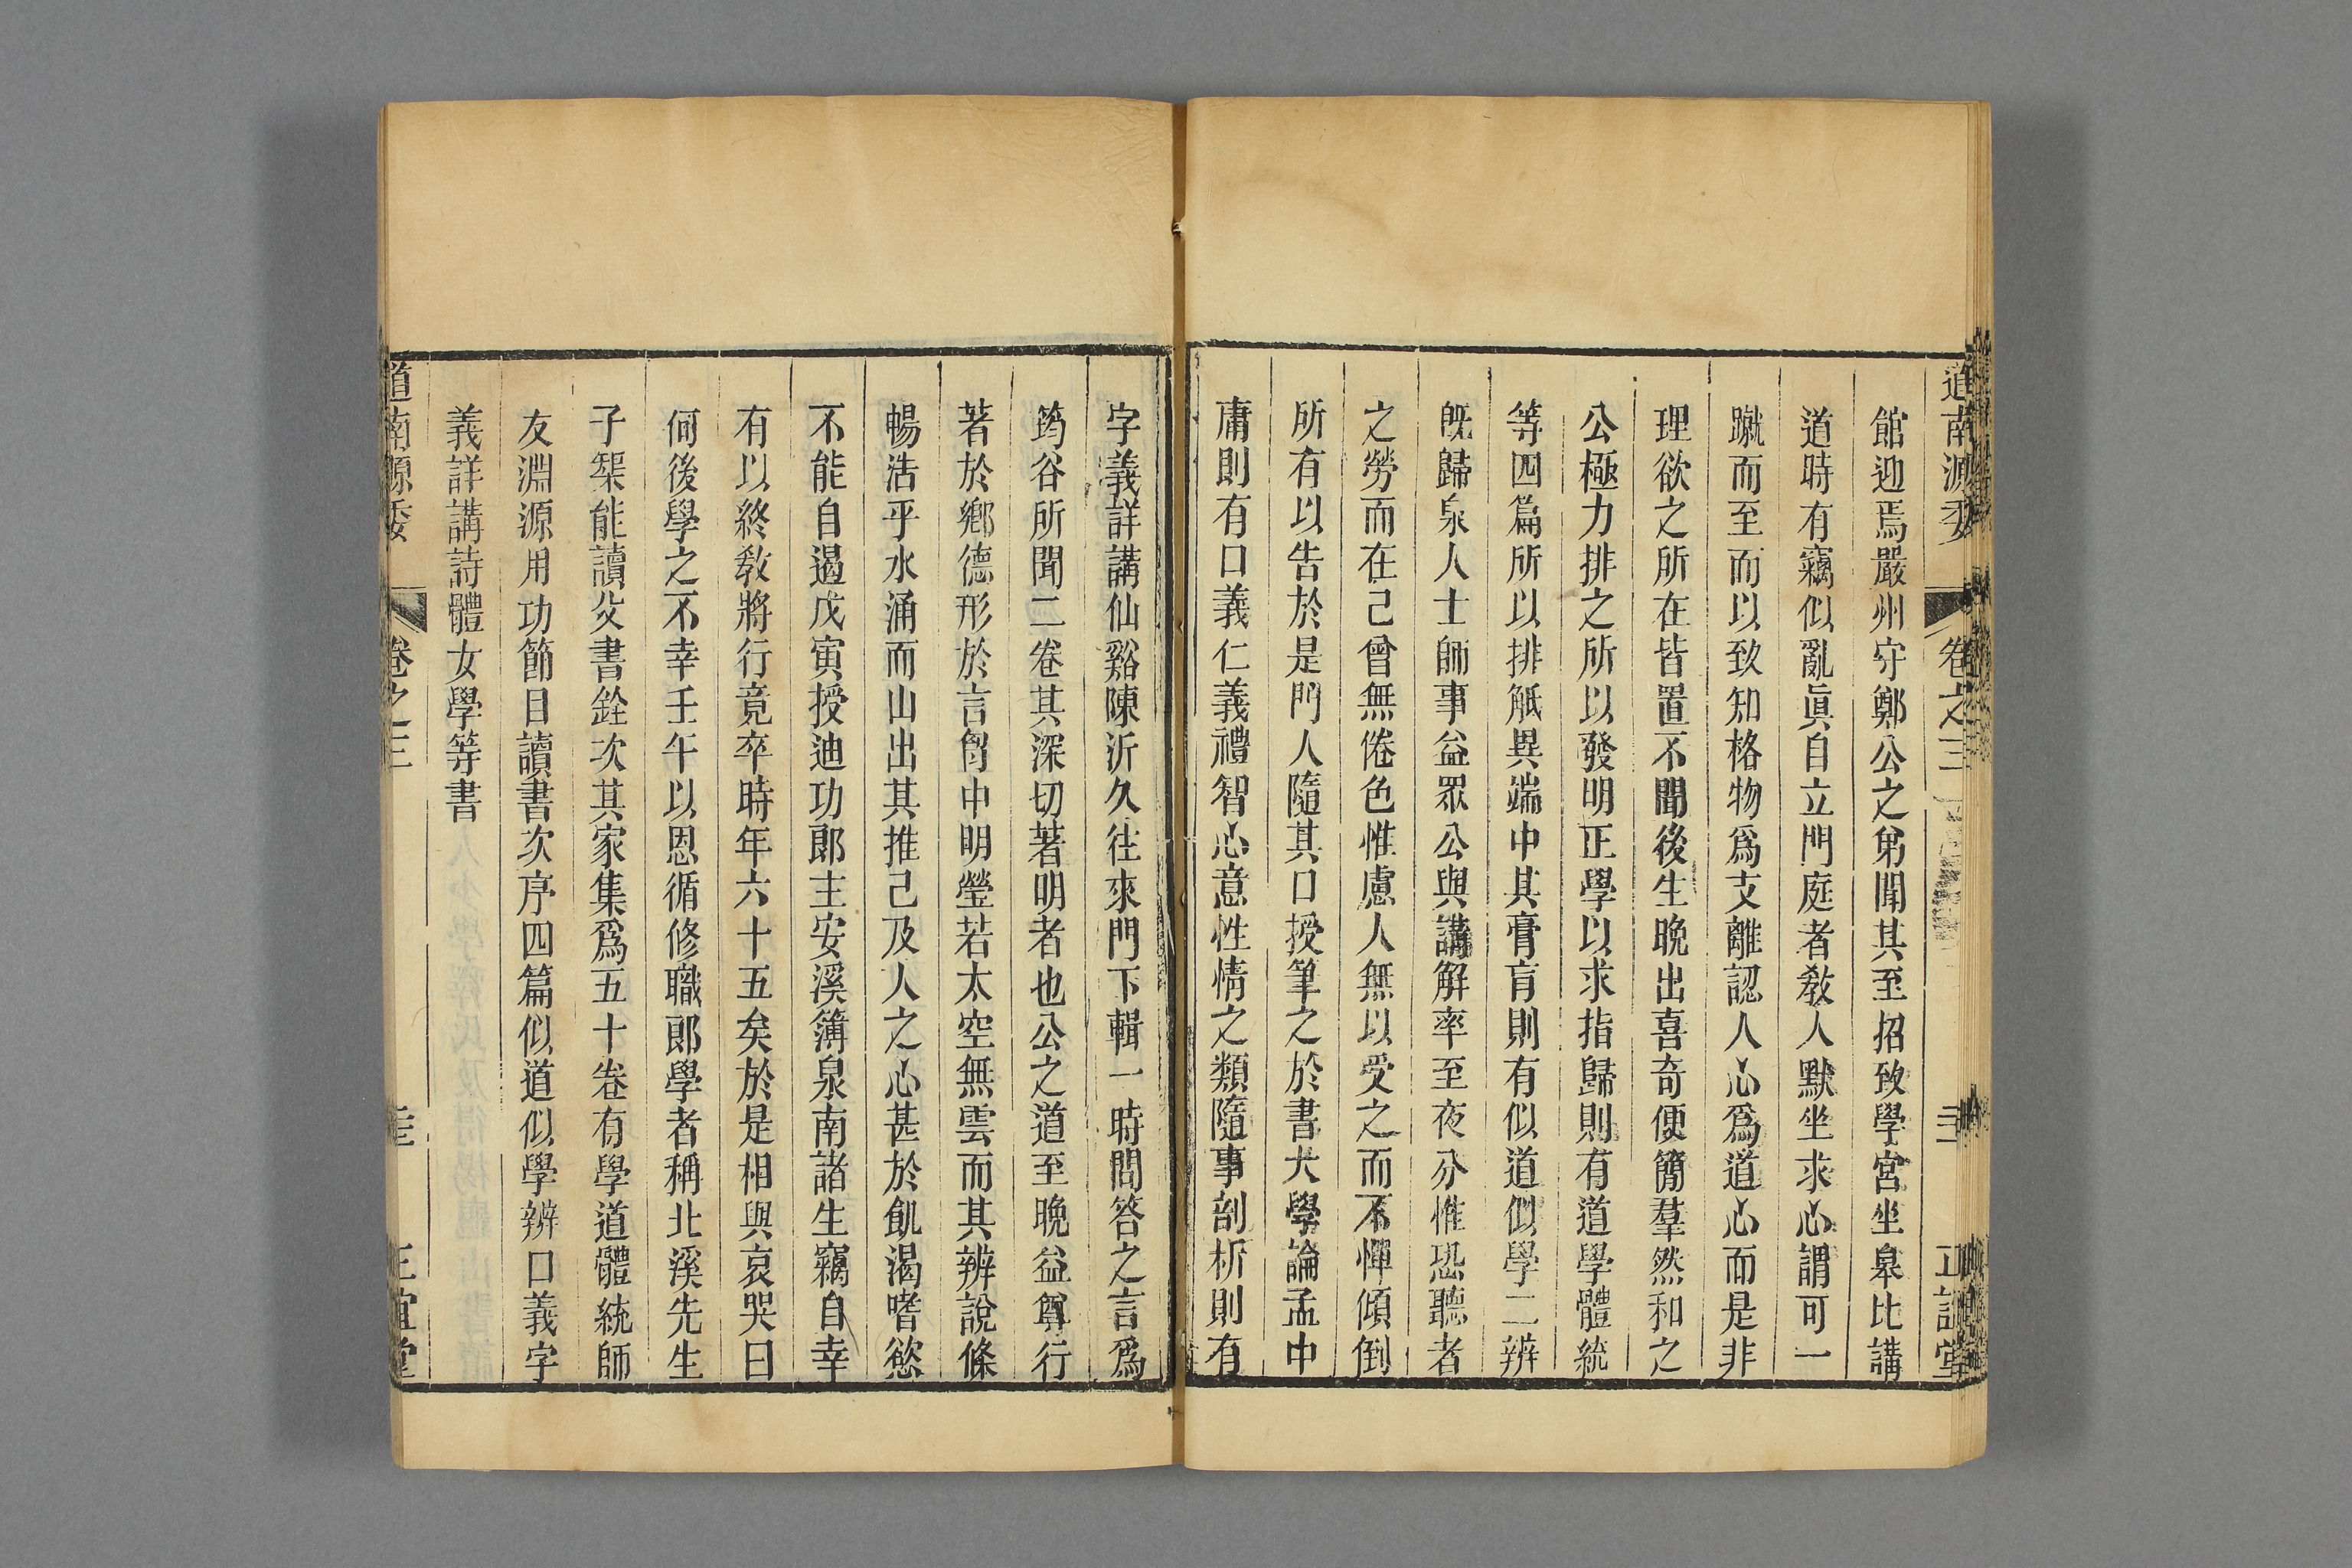 道南源委 卷之三 正誼堂
館迎焉嚴州守鄭公之弟聞其至招致學宮坐皋比講
道時有竊似亂眞自立門庭者敎人默坐求心謂可一
蹴而至而以致知格物爲支離認人心爲道心而是非
理欲之所在皆置不聞後生晚出喜奇便簡羣然和之
公極力排之所以發明正學以求指歸則有道學體統
等四篇所以排觝異端中其膏肓則有似道似學二辨
旣歸泉人士師事益眾公與講解率至夜分惟恐聽者
之勞而在己曾無倦色惟慮人無以受之而不憚傾倒
所有以告於是門人隨其口授筆之於書大學論孟中
庸則有口義仁義禮智心意性情之類隨事剖析則有
字義詳講仙谿陳沂久往來門下輯一時問答之言爲
筠谷所聞二卷其深切著明者也公之道至晚益尊行
著於鄉德形於言胷中明瑩若太空無雲而其辨說條
暢浩乎水涌而山出其推己及人之心甚於飢渴嗜慾
不能自遏戊寅授迪功郞主安溪簿泉南諸生竊自幸
有以終敎將行竟卒時年六十五矣於是相與哀哭曰
何後學之不幸壬午以恩循修職郞學者稱北溪先生
子榘能讀父書銓次其家集爲五十卷有學道體統師
友淵源用功節目讀書次序四篇似道似學辨口義字
義詳講詩體女學等書
道南源委 卷之三 正誼堂